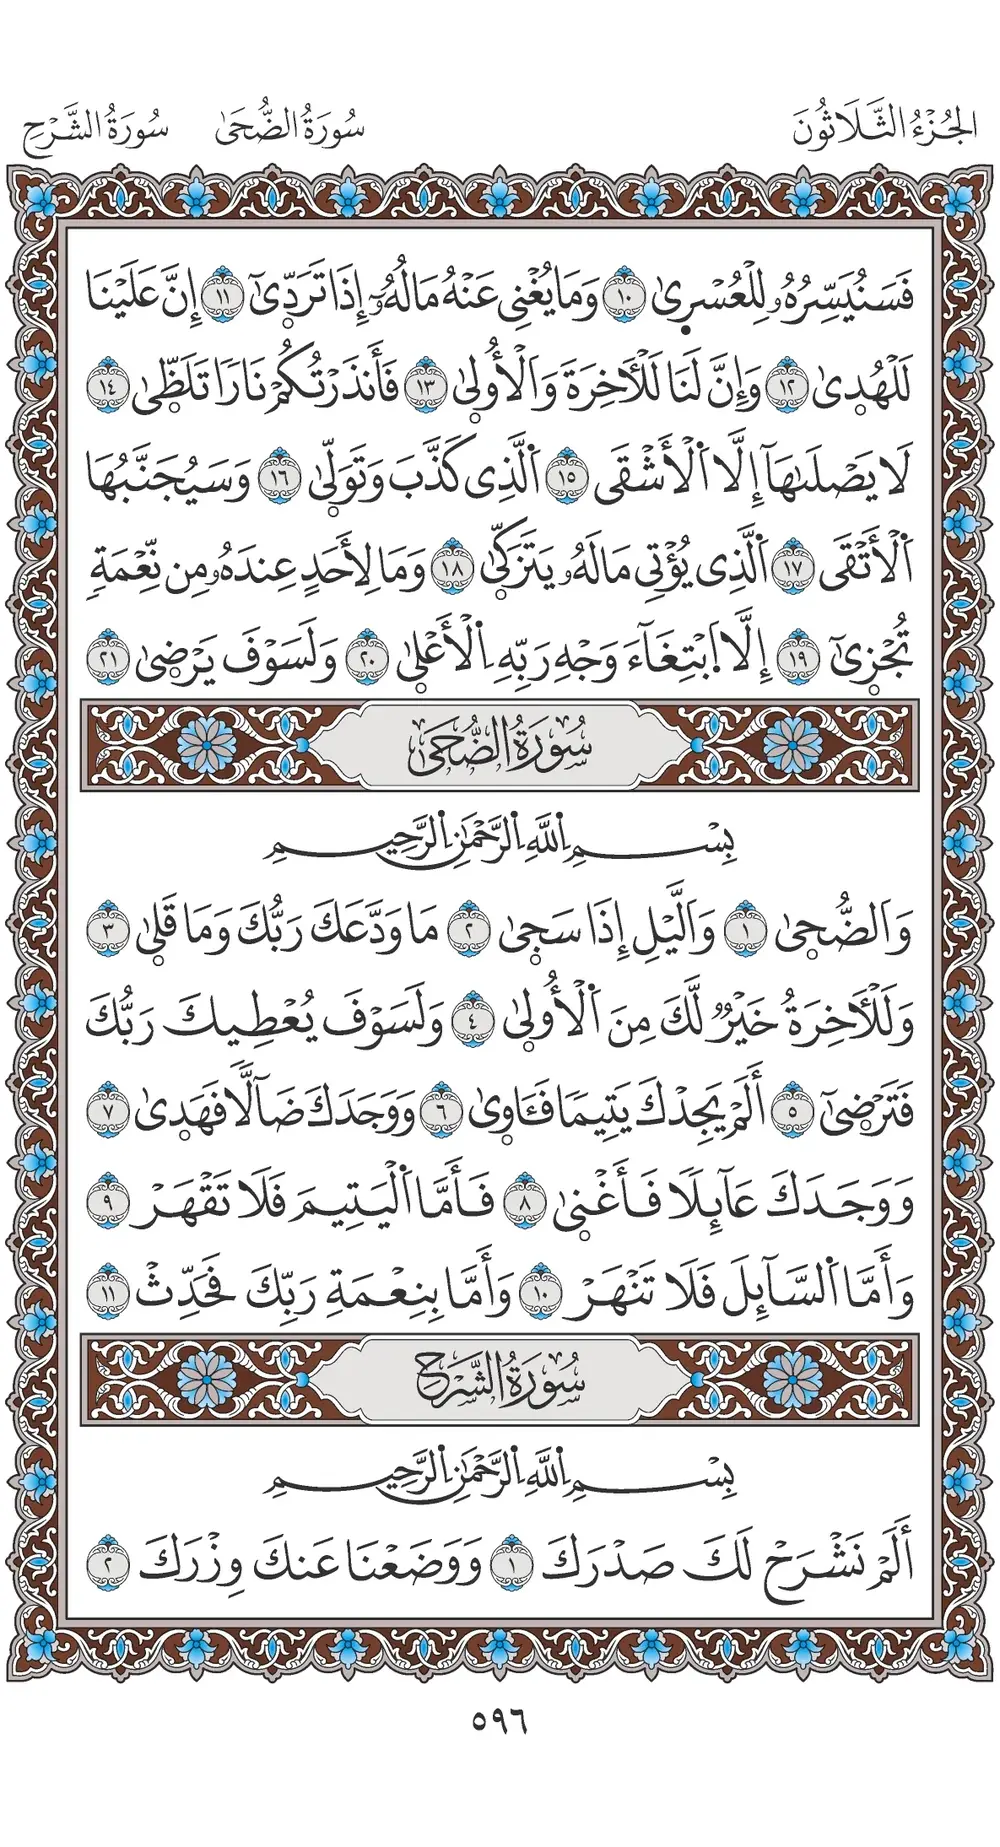 الجُزْءُ الثَّلَاثُونَ سُورَةُ الضُّحَىٰ سُورَةُ الشَّرْحِ
فَسَنُيَسِّرُهُۥ لِلْعُسْرٜىٰ ١٠ وَمَا يُغْنِى عَنْهُ مَالُهُۥٓ إِذَا تَرَدّٜىٰٓ ١١ إِنَّ عَلَيْنَا
لَلْهُدٜىٰ ١٢ وَإِنَّ لَنَا لَلْأٓخِرَةَ وَاَلْأُولٜىٰ ١٣ فَأَنذَرْتُكُمْ نَارٗا تَلَظّٜىٰ ١٤
لَا يَصْلَىٰهَآ إِلَّا اَلْأَشْقَى ١٥ اَلَّذِى كَذَّبَ وَتَوَلّٜىٰ ١٦ وَسَيُجَنَّبُهَا
اَلْأَتْقَى ١٧ اَلَّذِى يُؤْتِى مَالَهُۥ يَتَزَكّٜىٰ ١٨ وَمَا لِأَحَدٍ عِندَهُۥ مِن نِّعْمَةٖ
تُجْزٜىٰٓ ١٩ إِلَّا اَبْتِغَآءَ وَجْهِ رَبِّهِ اِلْأَعْلٜىٰ ٢٠ وَلَسَوْفَ يَرْضٜىٰ ٢١
سُورَةُ الضُّحَىٰ
بِسْمِ اِللَّهِ اِلرَّحْمَٰنِ اِلرَّحِيمِ
وَاَلضُّحٜىٰ ١ وَاَلَّيْلِ إِذَا سَجٜىٰ ٢ مَا وَدَّعَكَ رَبُّكَ وَمَا قَلٜىٰ ٣
وَلَلْأٓخِرَةُ خَيْرٞ لَّكَ مِنَ اَلْأُولٜىٰ ٤ وَلَسَوْفَ يُعْطِيكَ رَبُّكَ
فَتَرْضٜىٰٓ ٥ أَلَمْ يَجِدْكَ يَتِيمٗا فَـَٔاوٜىٰ ٦ وَوَجَدَكَ ضَآلّٗا فَهَدٜىٰ ٧
وَوَجَدَكَ عَآئِلٗا فَأَغْنٜىٰ ٨ فَأَمَّا اَلْيَتِيمَ فَلَا تَقْهَرْ ٩
وَأَمَّا اَلسَّآئِلَ فَلَا تَنْهَرْ ١٠ وَأَمَّا بِنِعْمَةِ رَبِّكَ فَحَدِّثْ ١١
سُورَةُ الشَّرْحِ
بِسْمِ اِللَّهِ اِلرَّحْمَٰنِ اِلرَّحِيمِ
أَلَمْ نَشْرَحْ لَكَ صَدْرَكَ ١ وَوَضَعْنَا عَنكَ وِزْرَكَ ٢
٥٩٦